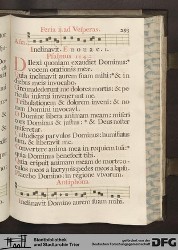 Feria ii. ad Vesperas. 293
Inclinavit. E u o u a e.
Dilexi quoniam exaudiet Dominus:*
vocem orationis meæ.
Quia inclinavit aurem suam mihi:* & in
diebus meis invocabo.
Circumdederunt me dolores mortis: & pe
ricula inferni invenerunt me.
Tribulationem & dolorem inveni: & no
men Domini invocavi.
O Domine libera animam meam: miseri
cors Dominus & justus: * & Deus noster
miseretur.
Custodiens parvulos Dominus: humiliatus
sum, & liberavit me.
Convertere anima mea in requiem tuam:
quia Dominus benefecit tibi.
Quia eripuit animam meam de morte:
oculos meos a lacrymis: pedes meos a lapsu
Placebo Domino: in regione vivorum.
Antiphona.
Inclinavit Domino aurem suam mihi.
gefördert durch die
DFG